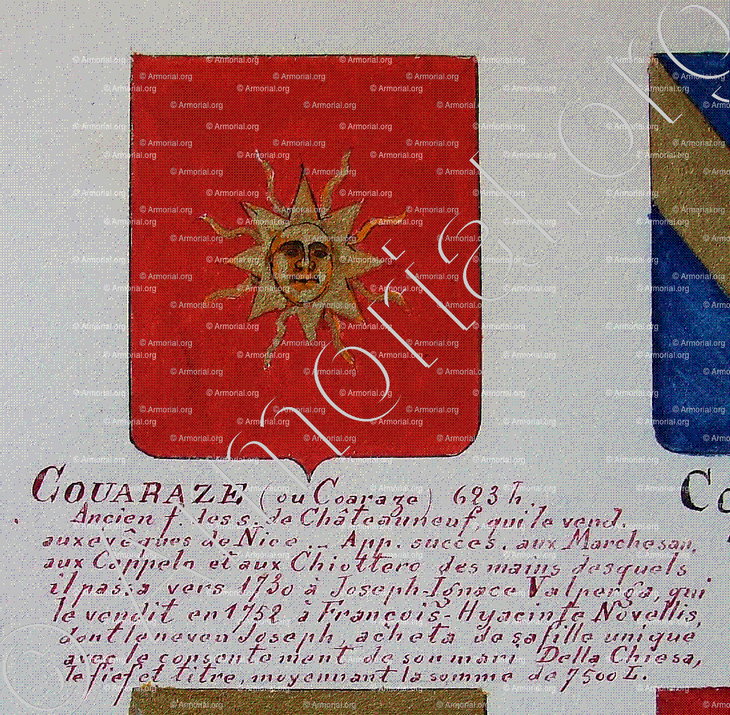 COUARAZE (ou Coaraze) 623 h.
Ancien f. des s. de Châteauneuf, qui le vend.
aux evêques de Nice _ App. succes. aux Marchesan,
aux Cappeln et aux Chiottero des mains desquels
il passa vers 1730 à Joseph-Ignace Valperga, qui
le vendit en 1752 à François-Hyacinte Novellis,
dont le neveu Joseph, acheta de sa fille unique
avec le consentement de son mari Della Chiesa,
le fief et titre, moyennant la somme de 7500 L.
Co
© Armorial.org